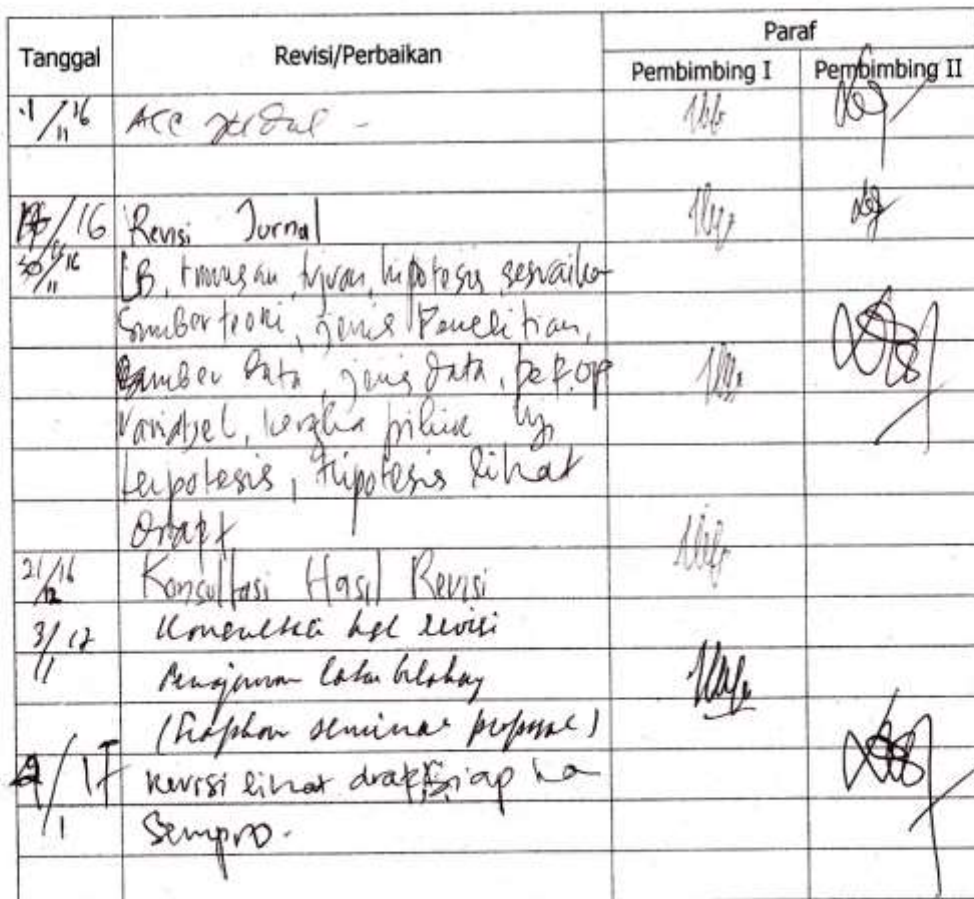 Tanggal Revisi/Perbaikan Paraf
Pembimbing I Pembimbing II
/11 16 ACC
/16 Revisi Jurnal
30/11 16 LB, tujuan, hipotesis sesuaikan
Sumber teori, jenis Penelitian,
Sumber Data, jenis data, Def. Op
Variabel,
hipotesis, Hipotesis lihat
Draft
21/12 16 Konsultasi Hasil Revisi
3/1 17 Konsultasi hsl revisi
Penajaman latar belakang
(Siapkan seminar proposal)
/1 17 Revisi lihat draft, siap kan
Sempro.